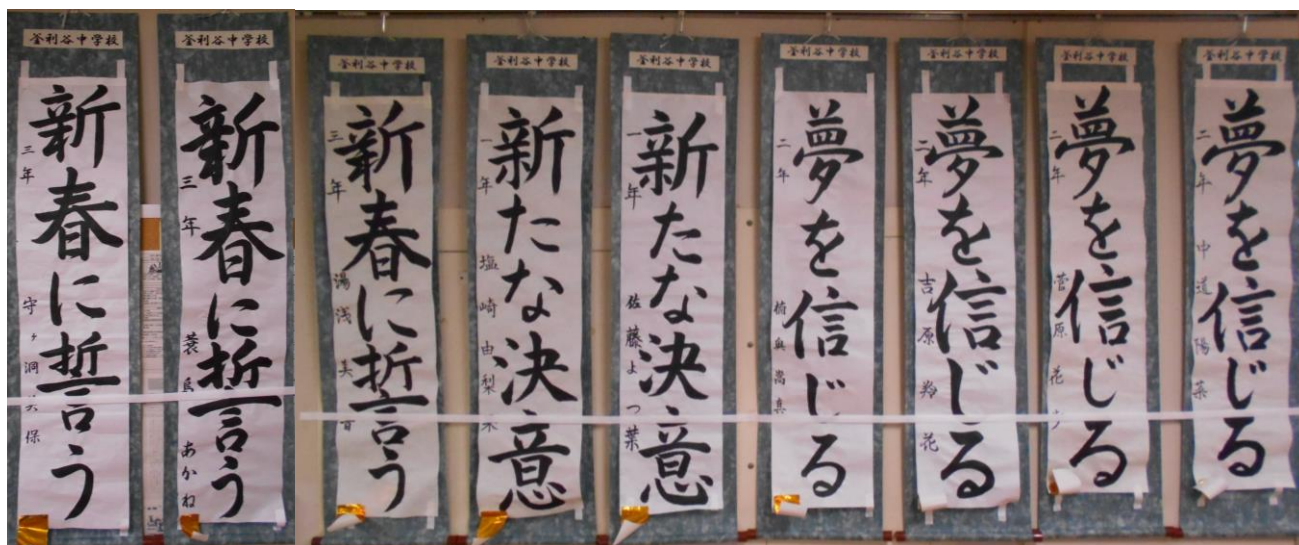 釜利谷中学校
新春に誓う
三年 守ヶ洞美保
釜利谷中学校
新春に誓う
三年 あかね
釜利谷中学校
新春に誓う
三年 湯浅美
釜利谷中学校
新たな決意
一年 塩崎由梨
釜利谷中学校
新たな決意
一年 佐藤よつ葉
釜利谷中学校
夢を信じる
二年
釜利谷中学校
夢を信じる
二年 吉原 花
釜利谷中学校
夢を信じる
二年 菅原花
釜利谷中学校
夢を信じる
二年 中道陽菜